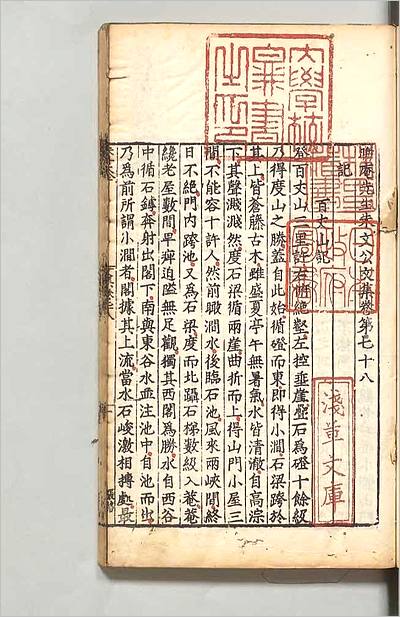 晦庵先生朱文公文集卷第七十八
記
百丈山記
登百丈山三里許右俯絕壑左控垂崖疊石爲磴十餘級
乃得度山之勝蓋自此始循磴而東即得小澗石梁跨於
其上皆蒼藤古木雖盛夏亭午無暑氣水皆清澈自高淙
下其聲濺濺然度石梁循兩崖曲折而上得山門小屋三
間不能容十許人然前瞰澗水後臨石池風來兩峽間終
日不絕門内跨池又爲石梁度而北躡石梯數級入菴菴
纔老屋數間卑痺迫隘無足觀獨其西閣爲勝水自西谷
中循石罅奔射出閣下南與東谷水並注池中自池而出
乃爲前所謂小澗者閣據其上流當水石峻激相搏處最
淺草文庫